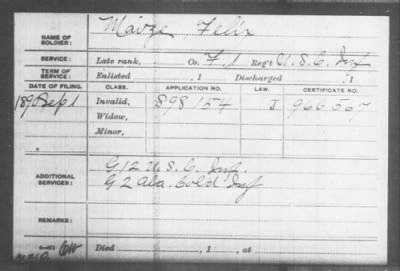 NAME OF SOLDIER: Mauzi, Felix
SERVICE: Late rank, Co. F, 1 Reg't U. S. C. Inf
TERM OF SERVICE: Enlisted , 1 Discharged , 1
DATE OF FILING. CLASS. APPLICATION NO. LAW. CERTIFICATE NO.
189 Sept 1 Invalid, 898157 J 966 567
Widow,
Minor,
ADDITIONAL SERVICES: G 12 U. S. C. Inf.
G 2 Ala. Cold Inf
REMARKS:
Died , 1 , at